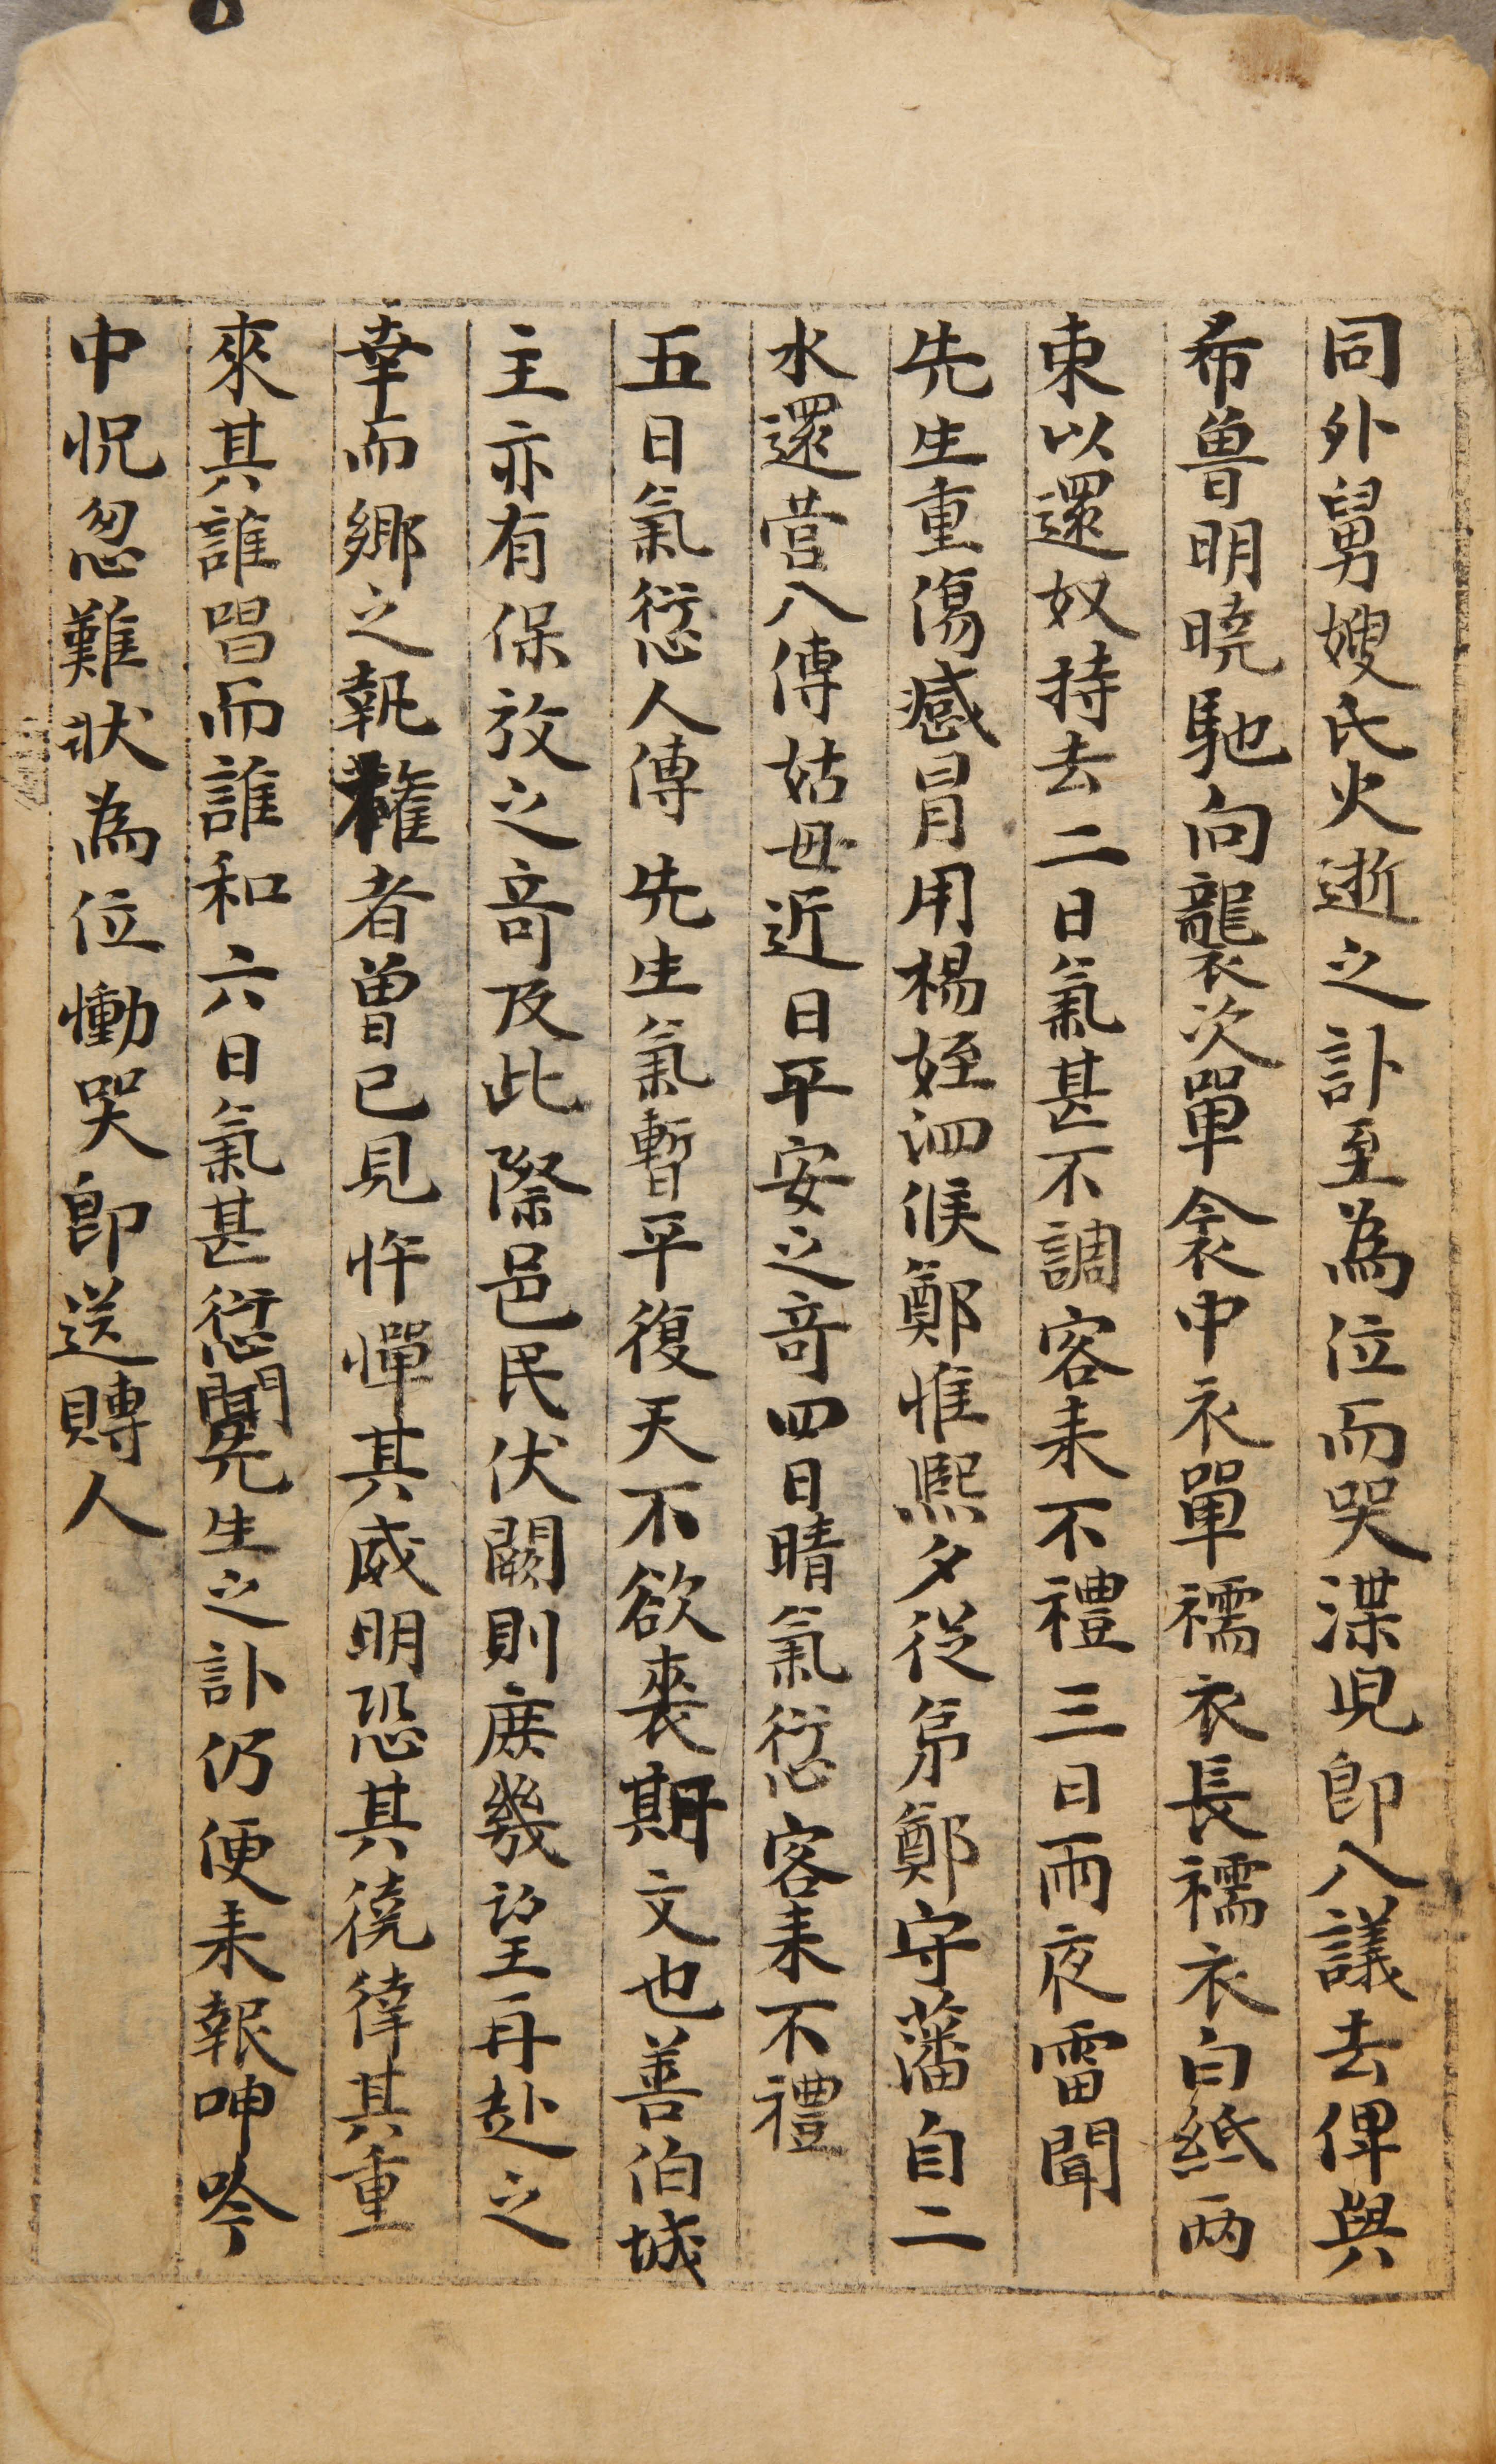 同外舅嫂氏火逝之訃至爲位而哭渫兒即入議去俾與
希魯明曉馳向襲次單衾中衣單襦衣長襦衣白紙兩
束以還奴持去二日氣甚不調客来不禮三日雨夜雷聞
先生重傷感冐用楊姪泗候鄭惟熙夕從弟鄭守藩自二
水還营入傳姑母近日平安之竒四日晴氣愆客来不禮
五日氣愆人傳 先生氣暫平復天不欲喪期文也善伯城
主亦有保放之竒及此際邑民伏闕則庶幾望再赴之
幸而鄉之執權者曾已見忤憚其威明恐其徺徫其重
來其誰唱而誰和六日氣甚愆聞先生之訃仍便来報呻吟
中怳忽難狀為位慟哭即送賻人